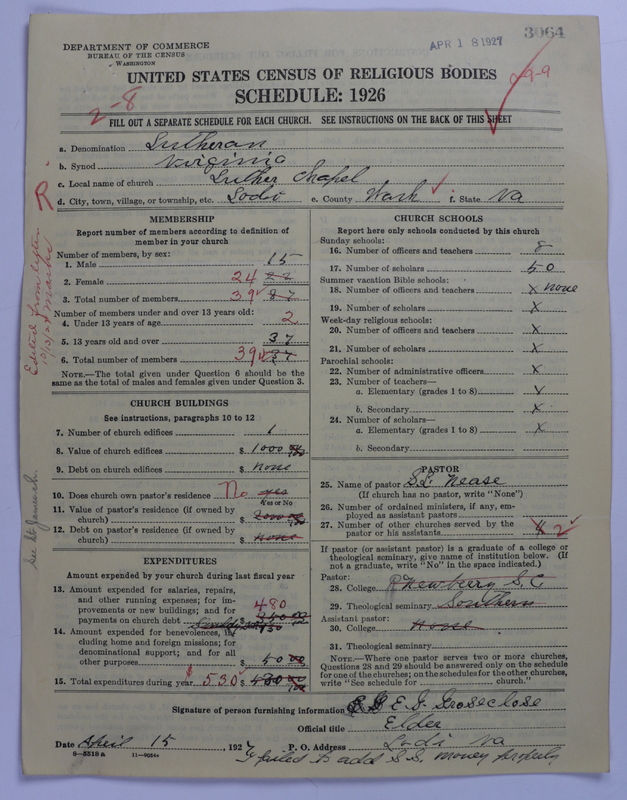 3064
APR 18 1927
DEPARTMENT OF COMMERCE
BUREAU OF THE CENSUS
WASHINGTON
UNITED STATES CENSUS OF RELIGIOUS BODIES
SCHEDULE: 1926
2-8
29-9
FILL OUT A SEPARATE SCHEDULE FOR EACH CHURCH. SEE INSTRUCTIONS ON THE BACK OF THIS SHEET
a. Denomination Lutheran
b. Synod Virginia
c. Local name of church Luther Chapel
d. City, town, village, or township, etc. Lodi e. County Wash f. State Va
R
Edited from letter
MEMBERSHIP
Report number of members according to definition of
member in your church
Number of members, by sex:
1. Male 15
2. Female 24 22
3. Total number of members 39 37
Number of members under and over 13 years old:
4. Under 13 years of age 2
5. 13 years old and over 37
6. Total number of members 39 37
NOTE.—The total given under Question 6 should be the
same as the total of males and females given under Question 3.
CHURCH BUILDINGS
See instructions, paragraphs 10 to 12
7. Number of church edifices 1
8. Value of church edifices $ 1000
9. Debt on church edifices $ None
10. Does church own pastor's residence No yes
Yes or No
11. Value of pastor's residence (if owned by
church) $
12. Debt on pastor's residence (if owned by
church) $ None
EXPENDITURES
Amount expended by your church during last fiscal year
13. Amount expended for salaries, repairs,
and other running expenses; for im-
provements or new buildings; and for
payments on church debt 480
14. Amount expended for benevolences, in-
cluding home and foreign missions; for
denominational support; and for all
other purposes $ 50 00
15. Total expenditures during year $ 530 $ 480
CHURCH SCHOOLS
Report here only schools conducted by this church
Sunday schools:
16. Number of officers and teachers 8
17. Number of scholars 50
Summer vacation Bible schools:
18. Number of officers and teachers x none
19. Number of scholars x
Week-day religious schools:
20. Number of officers and teachers x
21. Number of scholars x
Parochial schools:
22. Number of administrative officers x
23. Number of teachers—
a. Elementary (grades 1 to 8) x
b. Secondary x
24. Number of scholars—
a. Elementary (grades 1 to 8) x
b. Secondary
PASTOR
25. Name of pastor S.L. Nease
(If church has no pastor, write "None")
26. Number of ordained ministers, if any, em-
ployed as assistant pastors
27. Number of other churches served by the
pastor or his assistants 4 2
If pastor (or assistant pastor) is a graduate of a college or
theological seminary, give name of institution below. (If
not a graduate, write "No" in the space indicated.)
Pastor:
28. College Newberry S.C
29. Theological seminary Southern
Assistant pastor:
30. College None
31. Theological seminary
NOTE.—Where one pastor serves two or more churches,
Questions 28 and 29 should be answered only on the schedule
for one of the churches; on the schedules for the other churches,
write "See schedule for church."
Signature of person furnishing information E. G. Groseclose
Official title Elder
Date April 15, 1927 P. O. Address Lodi Va
8—5518a 11—9054a
I failed to add S.S. money properly